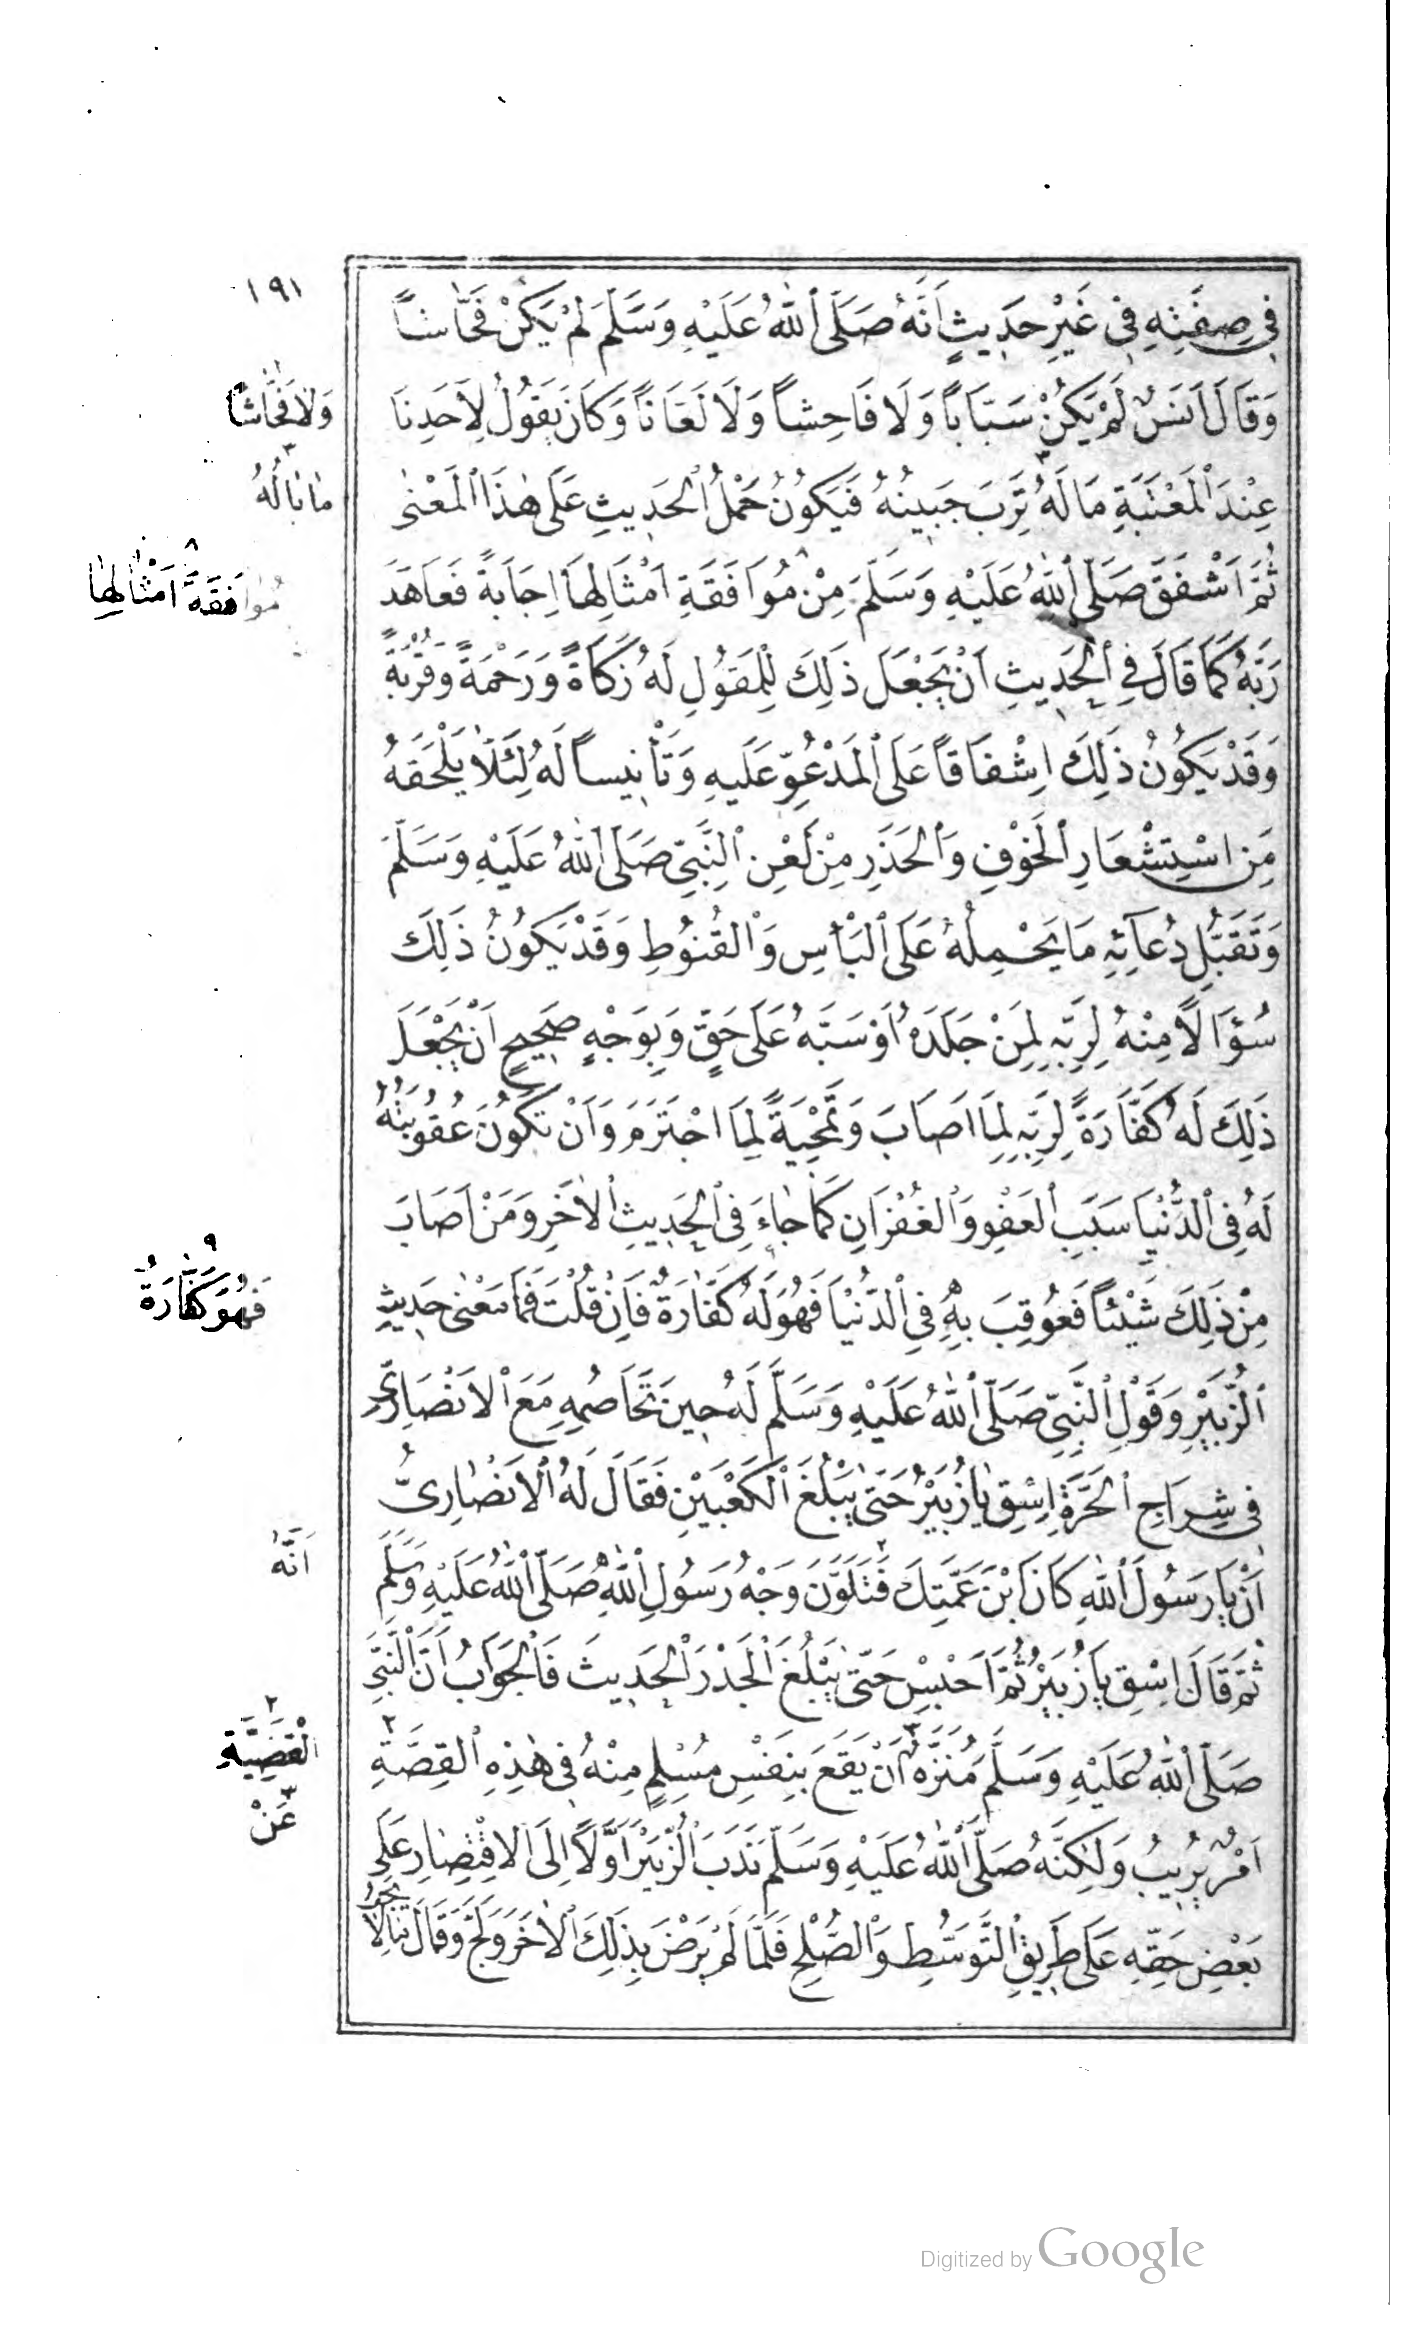 ١٩١
فِي صِفَتِهِ فِي غَيْرِ حَدِيثٍ اَنَّهُ صَلَّى اللهُ عَلَيْهِ وَسَلَّمَ لَمْ يَكُنْ فَحَّاشاً
وَقَالَ اَنَسٌ لَمْ يَكُنْ سَبَّاباً وَلَا فَاحِشاً وَلَا لَعَّاناً وَكَانَ يَقُولُ لِاَحَدِنَا
وَلَا فَحَّاشًا
عِنْدَ الْمَعْتَبَةِ مَا لَهُ تَرِبَ جَبِينُهُ فَيَكُونُ حَمْلُ الْحَدِيثِ عَلَى هٰذَا الْمَعْنٰى
٣ مَا بَالُهُ
ثُمَّ اَشْفَقَ صَلَّى اللهُ عَلَيْهِ وَسَلَّمَ مِنْ مُوَافَقَةِ اَمْثَالِهَا اِجَابَةً فَعَاهَدَ
٨ مُوَافَقَةَ اَمْثَالِهَا
رَبَّهُ كَمَا قَالَ فِي الْحَدِيثِ اَنْ يَجْعَلَ ذَلِكَ لِلْمَقُولِ لَهُ زَكَاةً وَرَحْمَةً وَقُرْبَةً
وَقَدْ يَكُونُ ذَلِكَ اِشْفَاقاً عَلَى الْمَدْعُوِّ عَلَيهِ وَتَأْنِيساً لَهُ لِئَلَّا يَلْحَقَهُ
مِنِ اسْتِشْعَارِ الْخَوْفِ وَالْحَذَرِ مِنْ لَعْنِ النَّبِيِّ صَلَّى اللهُ عَلَيْهِ وَسَلَّمَ
وَتَقَبُّلِ دُعَائِهِ مَا يَحْمِلُهُ عَلَى الْيَأْسِ وَالْقُنُوطِ وَقَدْ يَكُونُ ذَلِكَ
سُؤَالاً مِنْهُ لِرَبِّهِ لِمَنْ جَلَدَهُ اَوْ سَبَّهُ عَلَى حَقٍّ وَبِوَجْهٍ صَحِيحٍ اَنْ يَجْعَلَ
ذَلِكَ لَهُ كَفَّارَةً لِرَبِّهِ لِمَا اَصَابَ وَتَمْحِيَةً لِمَا اجْتَرَمَ وَاَنْ تَكُونَ عُقُوبَتُهُ
لَهُ فِي الدُّنْيَا سَبَبَ الْعَفْوِ وَالْغُفْرَانِ كَمَا جَاءَ فِي الْحَدِيثِ الْاٰخَرِ وَمَنْ اَصَابَ
مِنْ ذَلِكَ شَيْئاً فَعُوقِبَ بِهِ فِي الدُّنْيَا فَهُوَ لَهُ كَفَّارَةٌ فَاِنْ قُلْتَ فَمَا مَعْنٰى حَدِيثِ
٩ فَهُوَ كَفَّارَةٌ
الزُّبَيْرِ وَقَوْلِ النَّبِيِّ صَلَّى اللهُ عَلَيْهِ وَسَلَّمَ لَهُ حِينَ تَخَاصُمِهِ مَعَ الْاَنْصَارِيِّ
فِي شِرَاجِ الْحَرَّةِ اِسْقِ يَا زُبَيْرُ حَتّٰى يَبْلُغَ الْكَعْبَيْنِ فَقَالَ لَهُ الْاَنْصَارِيُّ
اَنْ يَا رَسُولَ اللهِ كَانَ ابْنَ عَمَّتِكَ فَتَلَوَّنَ وَجْهُ رَسُولِ اللهِ صَلَّى اللهُ عَلَيْهِ وَسَلَّمَ
اَنَّهُ
ثُمَّ قَالَ اِسْقِ يَا زُبَيْرُ ثُمَّ احْبِسْ حَتّٰى يَبْلُغَ الْجَدْرَ الْحَدِيثَ فَالْجَوَابُ اَنَّ النَّبِيَّ
صَلَّى اللهُ عَلَيْهِ وَسَلَّمَ مُنَزَّهٌ اَنْ يَقَعَ بِنَفْسِ مُسْلِمٍ مِنْهُ فِي هٰذِهِ الْقِصَّةِ
٢ الْقَضِيَّةِ
٣ عَنْ
اَمْرٌ يُرِيبُ وَلٰكِنَّهُ صَلَّى اللهُ عَلَيْهِ وَسَلَّمَ نَدَبَ الزُّبَيْرَ اَوَّلاً اِلَى الْاِقْتِصَارِ عَلَى
بَعْضِ حَقِّهِ عَلَى طَرِيقِ التَّوَسُّطِ وَالصُّلْحِ فَلَمَّا لَمْ يَرْضَ بِذَلِكَ الْاٰخَرُ وَلَجَّ وَقَالَ مَا لَا يَجِبُ
Digitized by Google